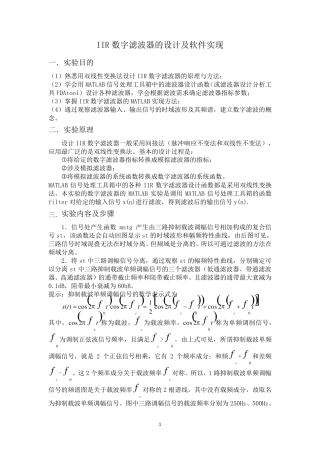 IIR数字滤波器的设计及软件实现
一．实验目的
（1）熟悉用双线性变换法设计IIR数字滤波器的原理与方法；
（2）学会用MATLAB信号处理工具箱中的滤波器设计函数(或滤波器设计分析工
具FDAtool）设计各种滤波器，学会根据滤波需求确定滤波器指标参数；
（3）掌握IIR数字滤波器的MATLAB实现方法；
（4）通过观察滤波器输入、输出信号的时域波形及其频谱，建立数字滤波的概
念。
二．实验原理
设计IIR数字滤波器一般采用间接法（脉冲响应不变法和双线性不变法），
应用最广泛的是双线性变换法。基本的设计过程是：
①将给定的数字滤波器指标转换成模拟滤波器的指标；
②涉及模拟滤波器；
③将模拟滤波器的系统函数转换成数字滤波器的系统函数。
MATLAB信号处理工具箱中的各种IIR数字滤波器设计函数都是采用双线性变换
法。本实验的数字滤波器的MATLAB实现是指调用MATLAB信号处理工具箱的函数
filter对给定的输入信号x(n)进行滤波，得到滤波后的输出信号y(n)。
三．实验内容及步骤
1．信号处产生函数mstg产生由三路抑制载波调幅信号相加构成的复合信
号st，该函数还会自动回图显示st的时域波形和幅频特性曲线，由后图可见，
三路信号时域混叠无法在时域分离。但频域是分离的，所以可通过滤波的方法在
频域分离。
2．将st中三路调幅信号分离，通过观察st的幅频特性曲线，分别确定可
以分离st中三路抑制载波调幅信号的三个滤波器（低通滤波器、带通滤波
器、高通滤波器）的通带截止频率和阻带截止频率。滤波器的通带最大衰减为
0.1dB，阻带最小衰减为60dB。
提示：抑制载波单频调幅信号的数学表示式为
其中，
称为载波，
为载波频率，
称为单频调制信号，
为调制正弦波信号频率，且满足
。由上式可见，所谓抑制载波单频
调幅信号，就是2个正弦信号相乘，它有2个频率成分：和频
和差频
，这2个频率成分关于载波频率
对称。所以，1路抑制载波单频调幅
信号的频谱图是关于载波频率
对称的2根谱线，其中没有载频成分，故取名
为抑制载波单频调幅信号。图中三路调幅信号的载波频率分别为250Hz、500Hz、